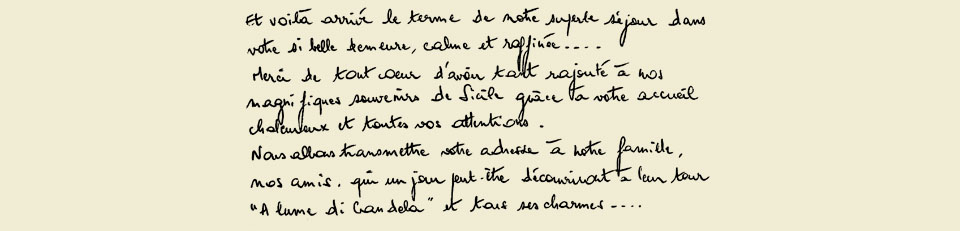 Et voilà arrivé le terme de notre superbe séjour dans
votre si belle demeure, calme et raffinée....
Merci de tout coeur d'avoir tant rajouté à nos
magnifiques souvenirs de Sicile grâce à votre accueil
chaleureux et toutes vos attentions.
Nous allons transmettre votre adresse à notre famille,
nos amis. qui un jour peut-être découvriront à leur tour
"A lume di Candela" et tous ses charmes....